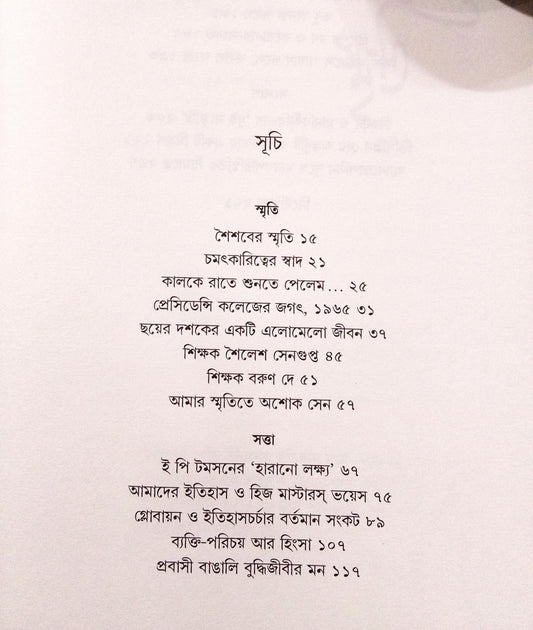 সূচি
স্মৃতি
শৈশবের স্মৃতি ১৫
চমৎকারিত্বের স্বাদ ২১
কালকে রাতে শুনতে পেলেম... ২৫
প্রেসিডেন্সি কলেজের জগৎ, ১৯৬৫ ৩১
ছয়ের দশকের একটি এলোমেলো জীবন ৩৭
শিক্ষক শৈলেশ সেনগুপ্ত ৪৫
শিক্ষক বরুণ দে ৫১
আমার স্মৃতিতে অশোক সেন ৫৭
সত্তা
ই পি টমসনের ‘হারানো লক্ষ্য’ ৬৭
আমাদের ইতিহাস ও হিজ মাস্টারস্ ভয়েস ৭৫
গ্লোবায়ন ও ইতিহাসচর্চার বর্তমান সংকট ৮৯
ব্যক্তি-পরিচয় আর হিংসা ১০৭
প্রবাসী বাঙালি বুদ্ধিজীবীর মন ১১৭